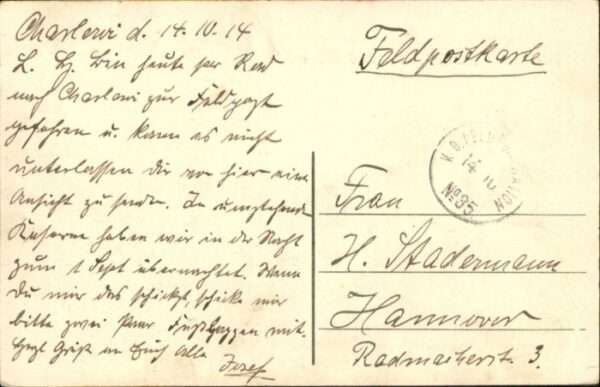 Charleroi d. 14.10.14
L. H. Bin heute per Rad
nach Charleroi zur Feldpost
gefahren u. kann es nicht
unterlassen dir von hier eine
Ansicht zu senden. In umstehender
Kaserne haben wir in der Nacht
zum 1 Sept übernachtet. Wenn
Du mir das schickst, schicke mir
bitte zwei Paar Fußlappen mit.
Hrzl Grüße an Euch Alle
Josef
Feldpostkarte
14 10
No 35
Frau
H. Stadermann
Hannover
Radmacherstr. 3.